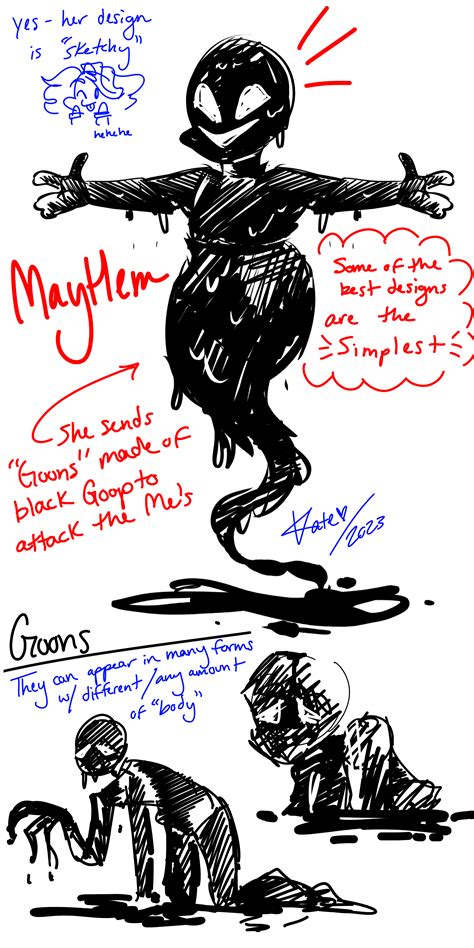 yes - her design
is "sketchy"
hehehe
MayHem
Some of the
best designs
are the
Simplest
She sends
"Goons" made of
black Goop to
attack the Me's
Kate♥/2023
Goons
They can appear in many forms
w/ different/any amount
of "body"